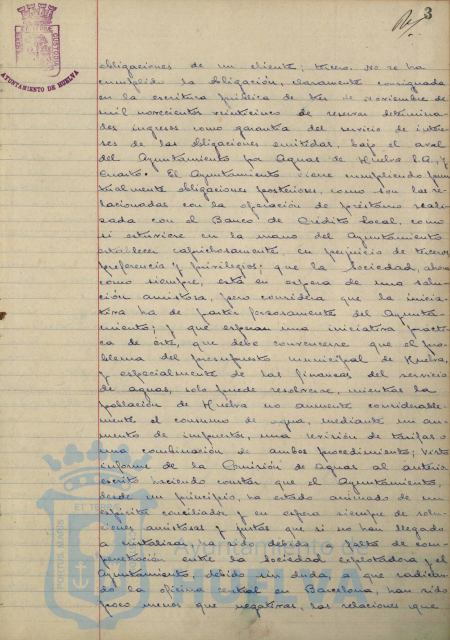 3
AYUNTAMIENTO DE HUELVA
obligaciones de un cliente; tercero. No se ha
cumplido la obligación, claramente consignada
en la escritura pública de tres de noviembre de
mil novecientos veinticinco de reservar determina-
dos ingresos como garantía del servicio de intere-
ses de las obligaciones emitidas, bajo el aval
del Ayuntamiento por Aguas de Huelva S.A., y
cuarto. El Ayuntamiento viene cumpliendo pun-
tualmente obligaciones posteriores, como son las re-
lacionadas con la operación de préstamo reali-
zada con el Banco de Crédito Local, como
si estuviere en la mano del Ayuntamiento
establecer caprichosamente, en perjuicio de terceros,
preferencia y privilegios; que la Sociedad, ahora
como siempre, está en espera de una solu-
ción amistosa, pero considera que la inicia-
tiva ha de partir forzosamente del Ayunta-
miento; y que esperan una iniciativa prácti-
ca de éste, que debe convencerse que el pro-
blema del presupuesto municipal de Huelva,
y especialmente de las finanzas del servicio
de aguas, solo puede resolverse, mientras la
población de Huelva no aumente considerable-
mente el consumo de agua, mediante un au-
mento de impuestos, una revisión de tarifas o
una combinación de ambos procedimientos; Visto
informe de la Comisión de Aguas al anterior
escrito haciendo constar que el Ayuntamiento,
desde un principio, ha estado animado de un
espíritu conciliador y en espera siempre de solu-
ciones amistosas y justas que si no han llegado
a cristalizar ha sido debido a falta de com-
penetración entre la Sociedad explotadora y el
Ayuntamiento, debido sin duda, a que radican-
do la oficina central en Barcelona, han sido
poco menos que negativas, las relaciones que
Ayuntamiento de
HUELVA